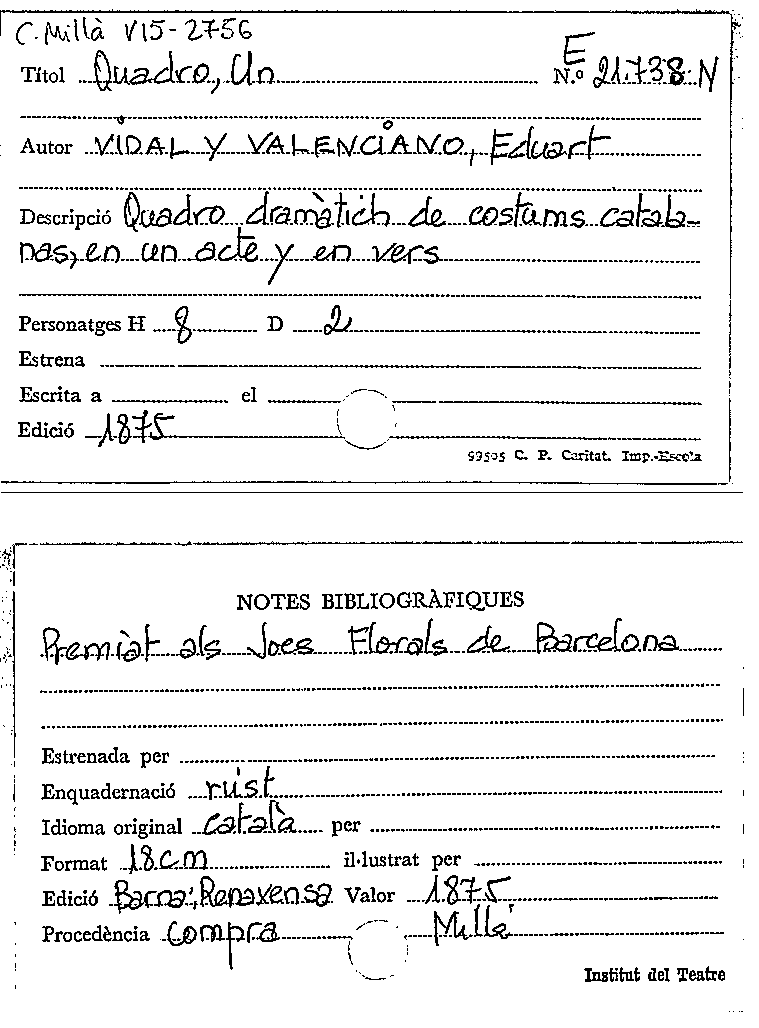 C. Millà V15-2756
Títol Quadro, Un N.º E 21.738-N
Autor VIDAL Y VALENCIANO, Eduart
Descripció Quadro dramàtich de costums catala-
nas, en un acte y en vers
Personatges H 8 D 2
Estrena
Escrita a el
Edició 1875
99505 C. P. Caritat. Imp.-Escola
NOTES BIBLIOGRÀFIQUES
Premiat als Jocs Florals de Barcelona
Estrenada per
Enquadernació rúst
Idioma original català per
Format 18cm il·lustrat per
Edició Barna:, Renaxensa Valor 1875
Procedència compra Millà
Institut del Teatre